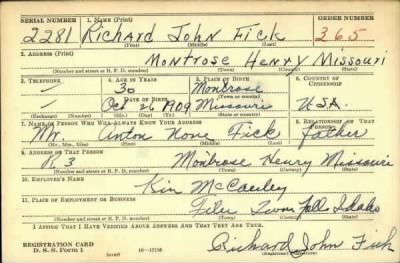 SERIAL NUMBER 1. NAME (Print) ORDER NUMBER
2281 Richard John Fick 365
(First) (Middle) (Last)
2. ADDRESS (Print)
Montrose Henry Missouri
(Number and street or R. F. D. number) (Town) (County) (State)
3. TELEPHONE 4. AGE IN YEARS 5. PLACE OF BIRTH 6. COUNTRY OF CITIZENSHIP
30 Montrose
DATE OF BIRTH (Town or county)
Oct 26 1909 Missouri U.S.A.
(Exchange) (Number) (Mo.) (Day) (Yr.) (State or country)
7. NAME OF PERSON WHO WILL ALWAYS KNOW YOUR ADDRESS 8. RELATIONSHIP OF THAT PERSON
Mr. Anton None Fick father
(Mr., Mrs., Miss) (First) (Middle) (Last)
9. ADDRESS OF THAT PERSON
R 3 Montrose Henry Missouri
(Number and street or R. F. D. number) (Town) (County) (State)
10. EMPLOYER'S NAME
Kin McCauley
11. PLACE OF EMPLOYMENT OR BUSINESS
Filer Twin Falls Idaho
(Number and street or R. F. D. number) (Town) (County) (State)
I AFFIRM THAT I HAVE VERIFIED ABOVE ANSWERS AND THAT THEY ARE TRUE.
REGISTRATION CARD
D. S. S. Form 1 (over) 16—17105 Richard John Fick